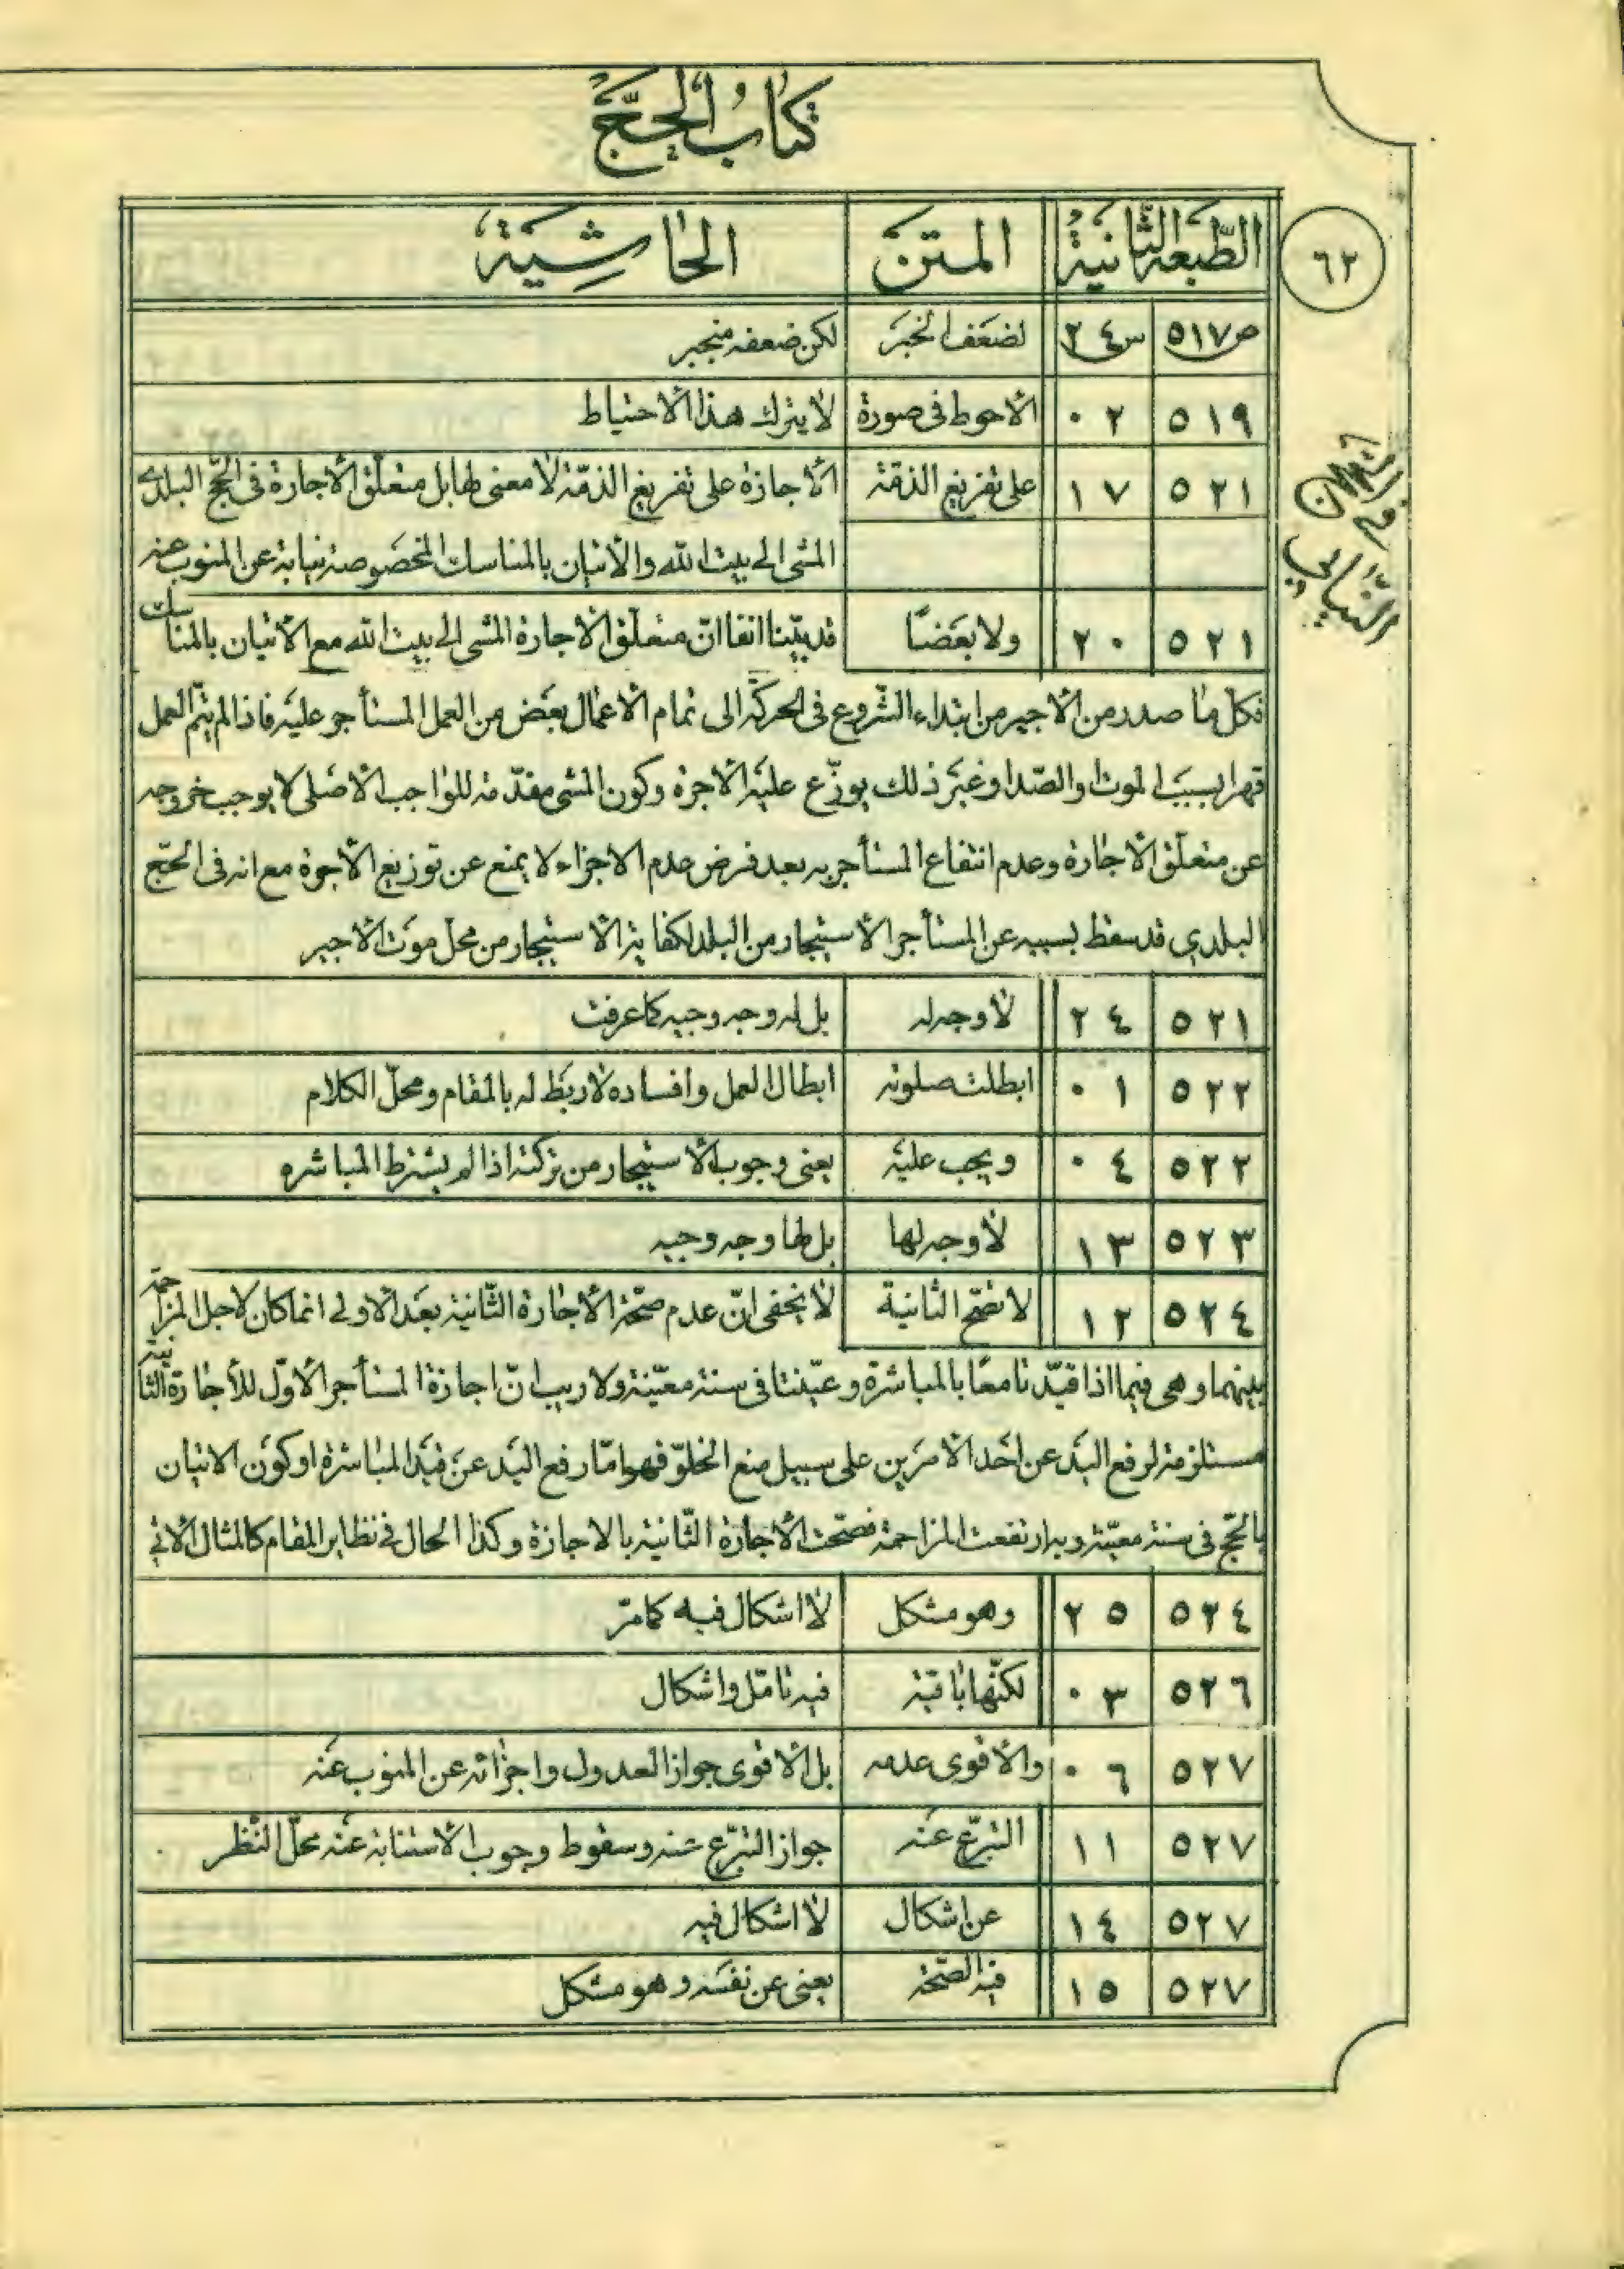 كتاب الحج
٦٢
الطبعة الثانية المتن الحاشية
ص٥١٧ س٢٤ لضعف الخبر لكن ضعفه منجبر
٥١٩ ٠٢ الاحوط فى صورة لا يترك هذا الاحتياط
٥٢١ ١٧ على تفريغ الذمّة الاجازة على تفريغ الذمّة لا معنى لها بل متعلّق الاجارة فى الحجّ البلدى
المشى الى بيت الله والاتيان بالمناسك المخصوصة نيابة عن المنوب عنه
٥٢١ ٢٠ ولا بعضًا قد بيّنا انفا انّ متعلّق الاجارة المشى الى بيت الله مع الاتيان بالمناسك
فكلّ ما صدر من الاجير من ابتداء الشّروع فى الحركة الى تمام الاعمال بعض من العمل المستأجر عليه فاذا لم يتمّ العمل
قهرا بسبب الموت والصّد او غير ذلك يوزّع عليه الاجرة وكون المشى مقدّمة للواجب الاصلى لا يوجب خروجه
عن متعلّق الاجارة وعدم انتفاع المستأجر به بعد فرض عدم الاجزاء لا يمنع عن توزيع الاجرة مع انه فى الحجّ
البلدي قد سقط بسببه عن المستأجر الاستيجار من البلد لكفاية الاستيجار من محل موت الاجير
٥٢١ ٢٤ لا وجه له بل له وجه وجيه كما عرفت
٥٢٢ ٠١ ابطلت صلوته ابطال العمل وافساده لا ربط له بالمقام ومحلّ الكلام
٥٢٢ ٠٤ ويجب عليه يعنى وجوب الاستيجار من تركته اذا لم يشترط المباشره
٥٢٣ ١٣ لا وجه لها بل لها وجه وجيه
٥٢٤ ١٢ لا تصّح الثانية لا يخفى انّ عدم صحّة الاجارة الثّانية بعد الاولى انما كان لاجل المزاحمة
بينهما وهى فيما اذا قيّدتا معًا بالمباشرة وعيّنتا فى سنة معيّنة ولا ريب انّ اجازة المستأجر الاوّل للأجارة الثانية
مستلزمة لرفع اليد عن احد الامرين على سبيل منع الخلوّ فهو امّا رفع اليد عن قيد المباشرة او كون الاتيان
بالحّج فى سنة معيّنة وبه ارتفعت المزاحمة فصحّت الاجارة الثّانية بالاجازة وكذا الحال فى نظاير المقام كالمثال الاتي
٥٢٤ ٢٥ وهو مشكل لا اشكال فيه كما مرّ
٥٢٦ ٠٣ لكنّها باقية فيه تامّل واشكال
٥٢٧ ٠٦ والاقوى عدمه بل الاقوى جواز العدول واجزائه عن المنوب عنه
٥٢٧ ١١ التبرّع عنه جواز التبرّع عنه وسقوط وجوب الاستنابة عنه محلّ النّظر
٥٢٧ ١٤ عن اشكال لا اشكال فيه
٥٢٧ ١٥ فيه الصّحة يعنى عن نفسه وهو مشكل